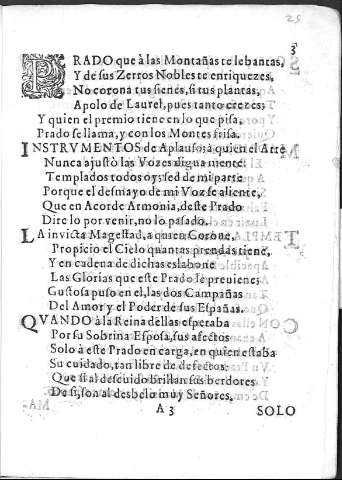 25
3
PRADO que à las Montañas te lebantas,
Y de sus Zerros Nobles te enriquezes,
No corona tus sienes, si tus plantas,
Apolo de Laurel, pues tanto creces;
Y quien el premio tiene en lo que pisa,
Prado se llama, y con los Montes frisa.
INSTRVMENTOS de Aplauso; à quien el Arte
Nunca ajustò las Vozes dignamente:
Templados todos oy sed de mi parte
Porque el desmayo de mi Voz se aliente,
Que en Acorde Armonia, deste Prado
Dire lo por venir, no lo pasado.
LA invicta Magestad, a quien Corone,
Propicio el Cielo quantas prendas tiene,
Y en cadena de dichas eslabone
Las Glorias que este Prado le preuiene;
Gustosa puso en el, las dos Campañas
Del Amor y el Poder de sus Españas.
QVANDO à la Reina dellas esperaba
Por su Sobrina Esposa, sus afectos
Solo à este Prado encarga, en quien estaba
Su cuidado, tan libre de defectos:
Que si al descuido brillan sus berdores
De si, son al desbelo muy Señores,
A 3 SOLO